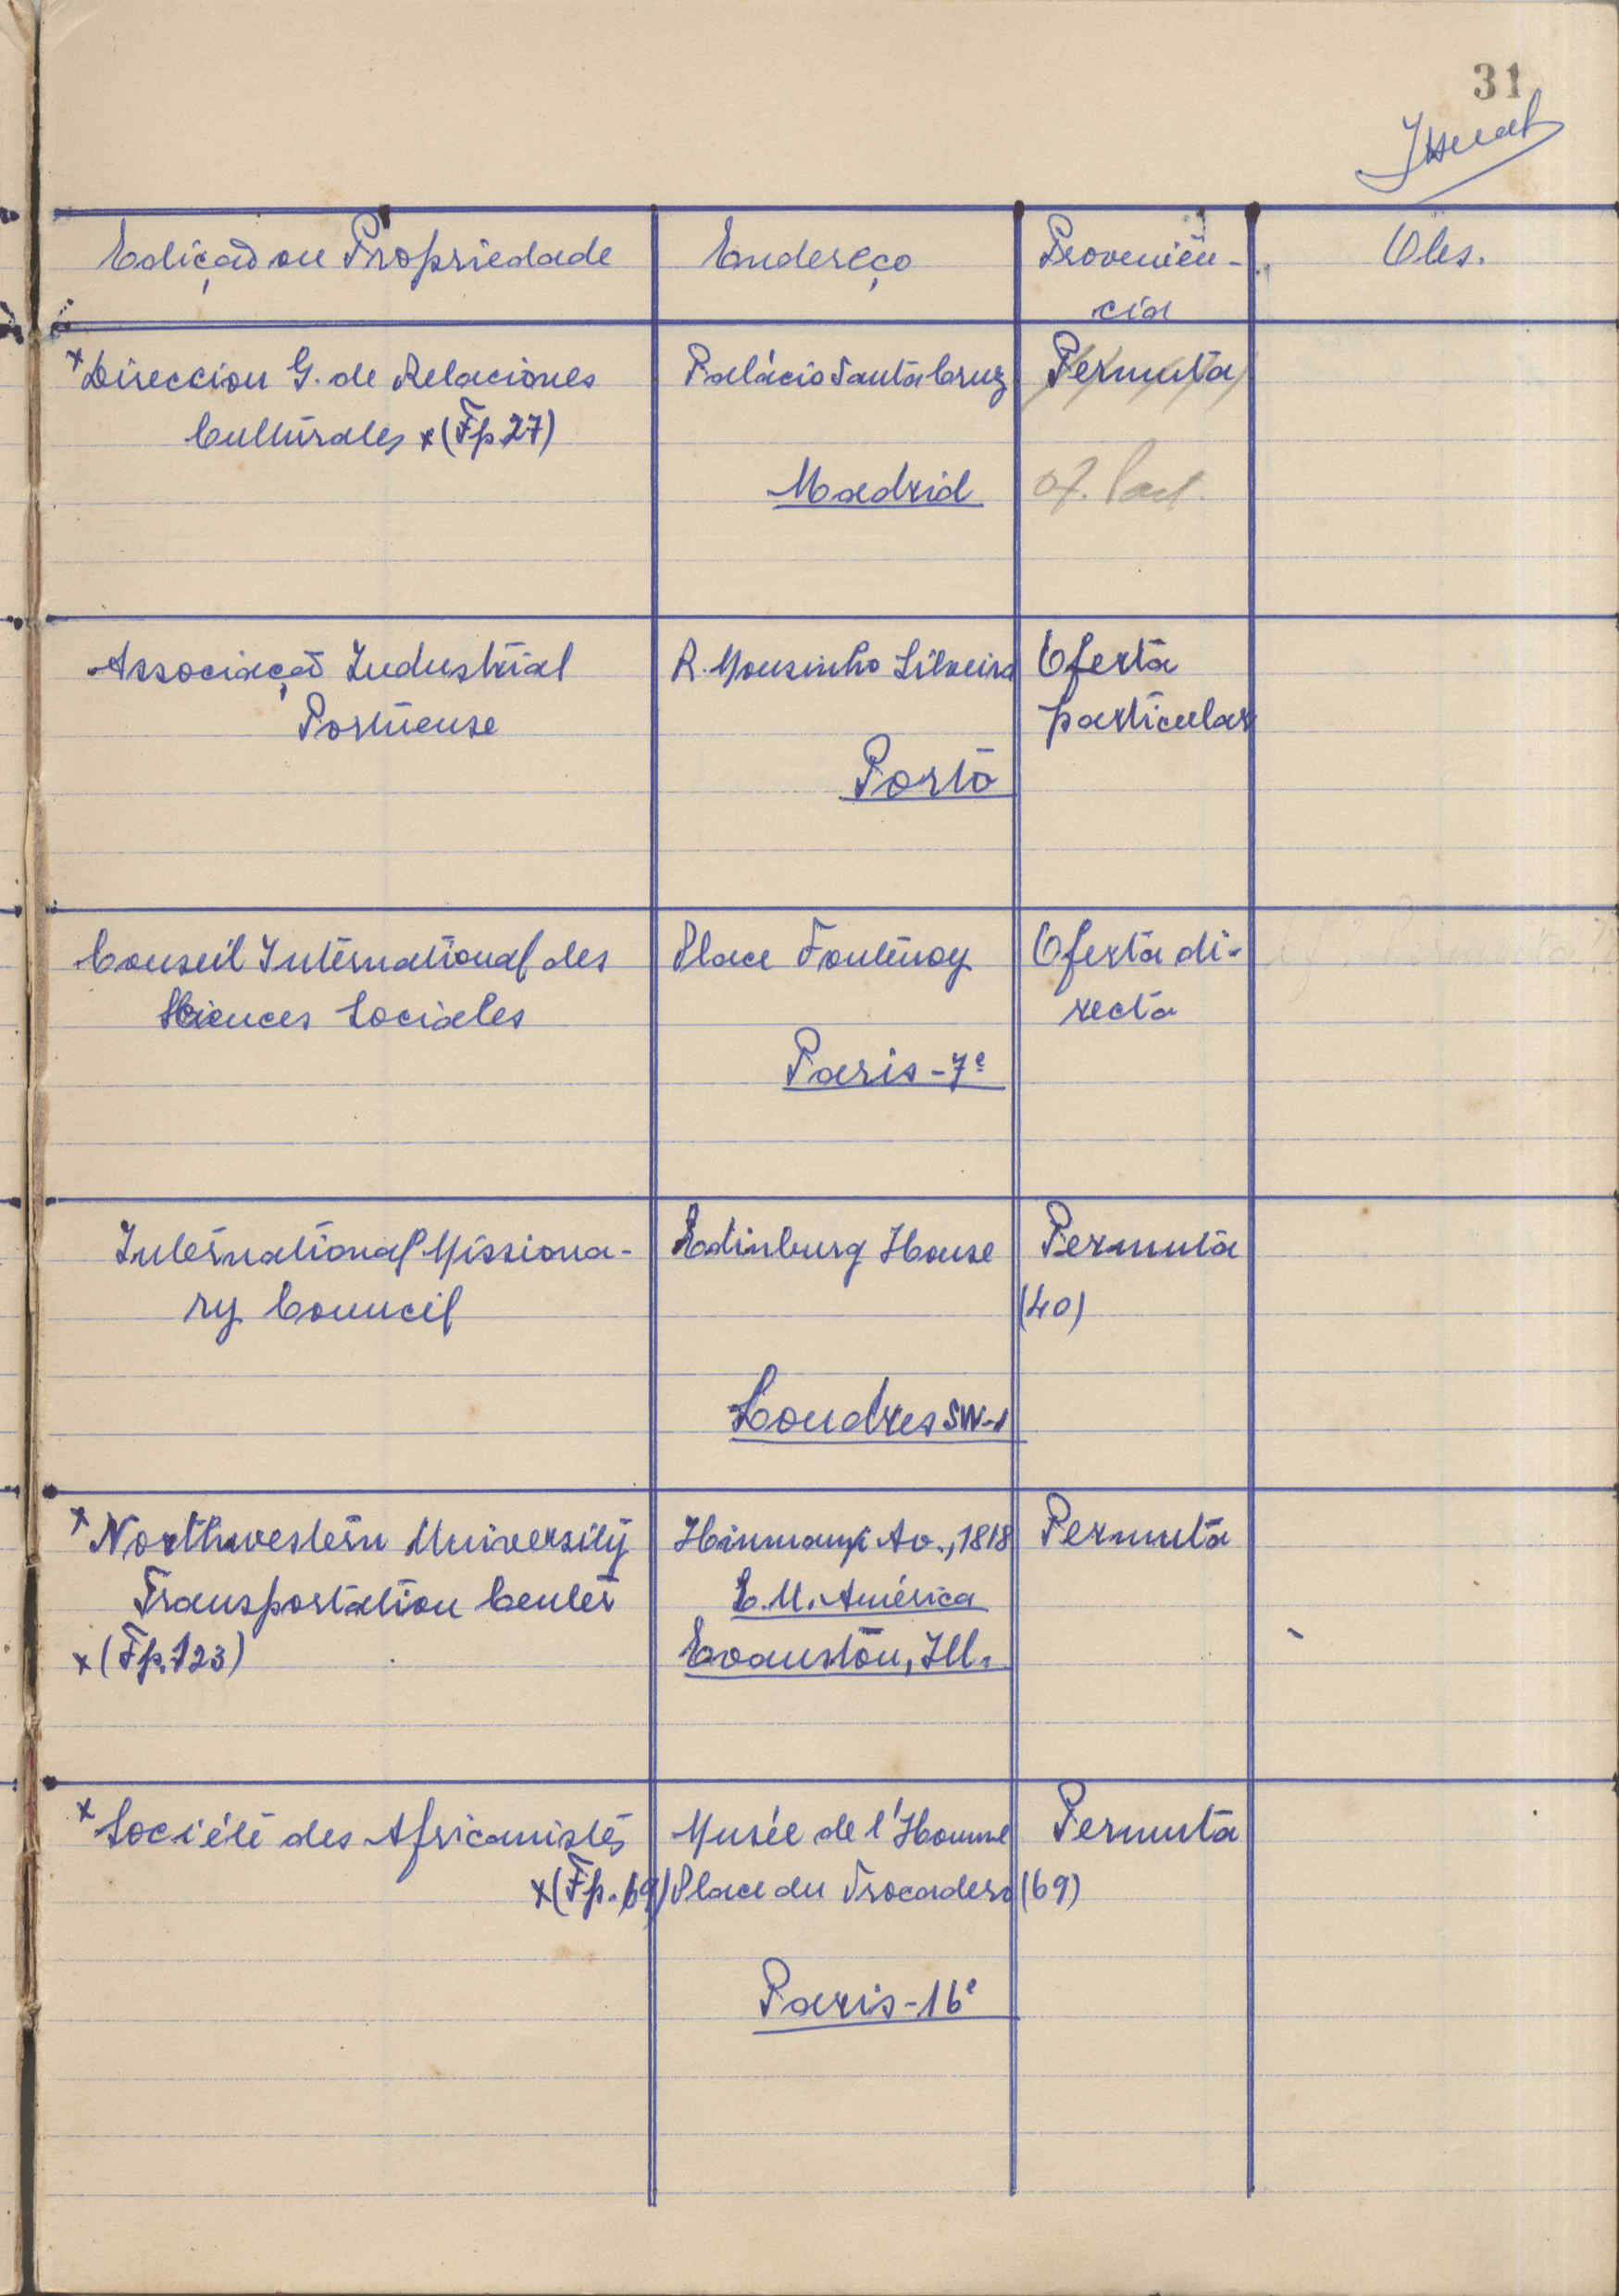 31
Edição ou Propriedade Endereço Proveniên- Obs.
cia
x Direccion G. de Relaciones Palácio Santa Cruz Permuta
Culturales x (Fp. 27)
Madrid of. Part.
Associação Industrial R. Mousinho Silveira Oferta
Portuense particular
Porto
Conseil International des Place Fontenoy Oferta di-
Sciences Sociales recta
Paris-7e
International Missiona- Edinburg House Permuta
ry Council (40)
Londres SW-1
x Northwestern University Hinmam Av., 1818 Permuta
Transportation Center E.U. América
x (Fp. 123) Evanston, Ill.
x Société des Africanistes Musée de l'Homme Permuta
x (Fp. 69) Place du Trocadero (69)
Paris-16e